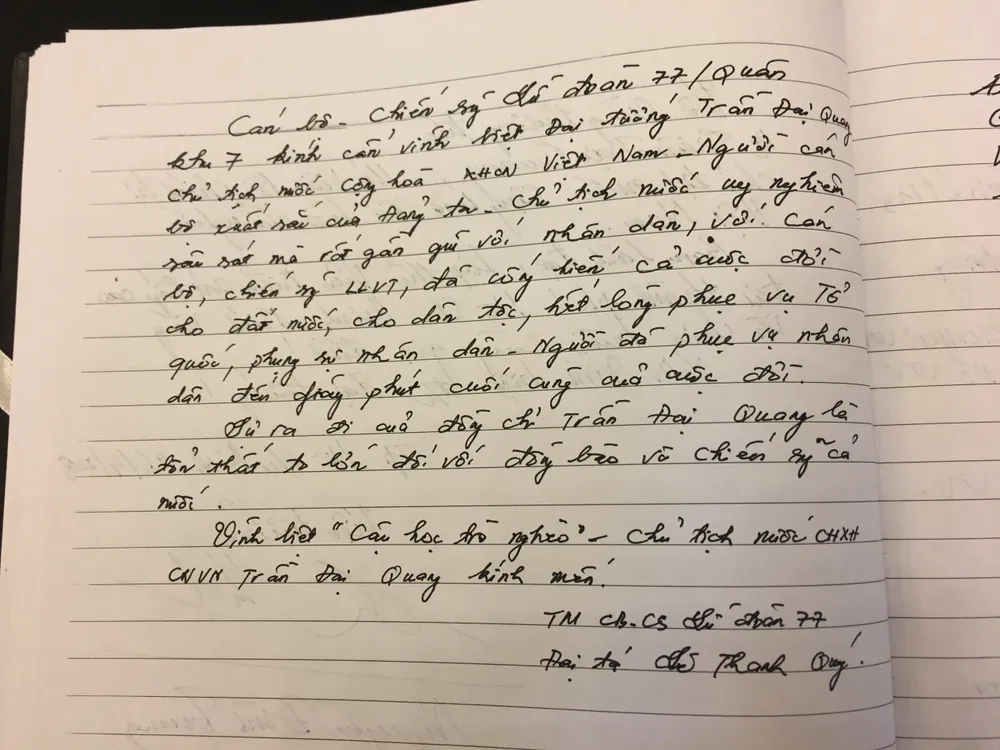 Cán bộ - Chiến sỹ Sư đoàn 77/Quân
khu 7 kính cẩn vĩnh biệt Đại tướng Trần Đại Quang
Chủ tịch nước cộng hoà XHCN Việt Nam - Người cán
bộ xuất sắc của Đảng ta - Chủ tịch nước uy nghiêm
sâu sát mà rất gần gũi với nhân dân, với cán
bộ, chiến sỹ LLVT, đã cống hiến cả cuộc đời
cho đất nước, cho dân tộc, hết lòng phục vụ Tổ
quốc, phụng sự nhân dân - Người đã phục vụ nhân
dân đến giây phút cuối cùng của cuộc đời.
Sự ra đi của đồng chí Trần Đại Quang là
tổn thất to lớn đối với đồng bào và chiến sỹ cả
nước.
Vĩnh biệt "Cậu học trò nghèo" - Chủ tịch nước CHXH
CNVN Trần Đại Quang kính mến!
TM CB-CS Sư đoàn 77
Đại tá Thanh Quý.